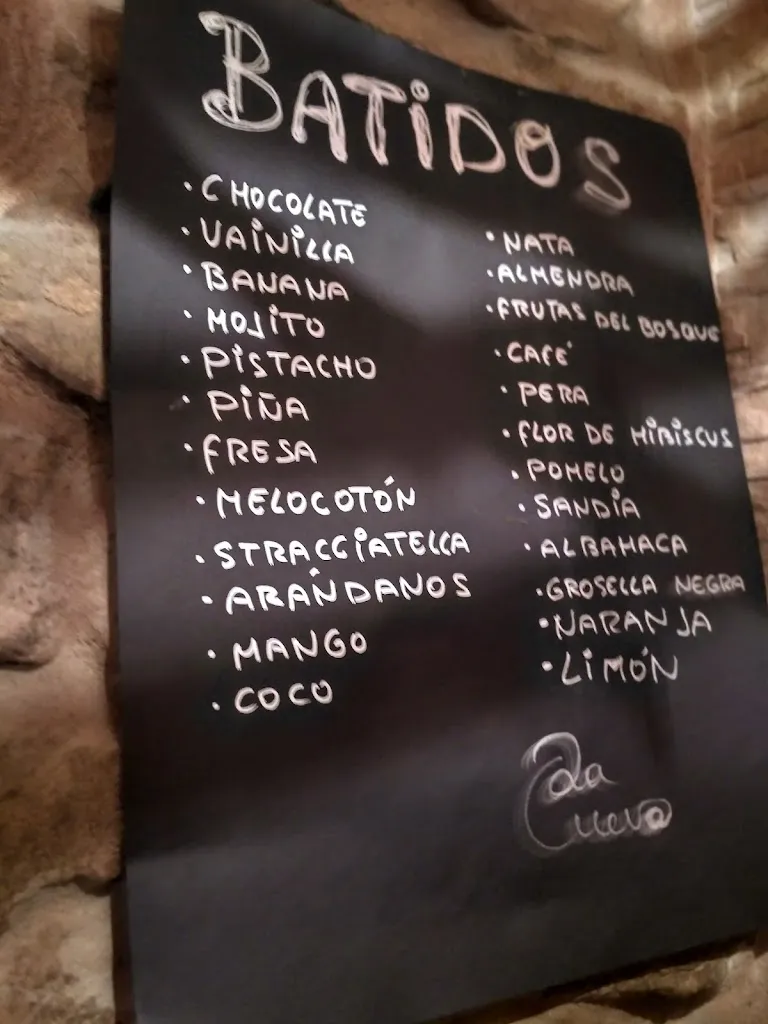 BATIDOS
· CHOCOLATE
· VAINILLA
· BANANA
· MOJITO
· PISTACHO
· PIÑA
· FRESA
· MELOCOTÓN
· STRACCIATELLA
· ARÁNDANOS
· MANGO
· COCO
· NATA
· ALMENDRA
· FRUTAS DEL BOSQUE
· CAFÉ
· PERA
· FLOR DE HIBISCUS
· POMELO
· SANDÍA
· ALBAHACA
· GROSELLA NEGRA
· NARANJA
· LIMÓN
La
Cueva